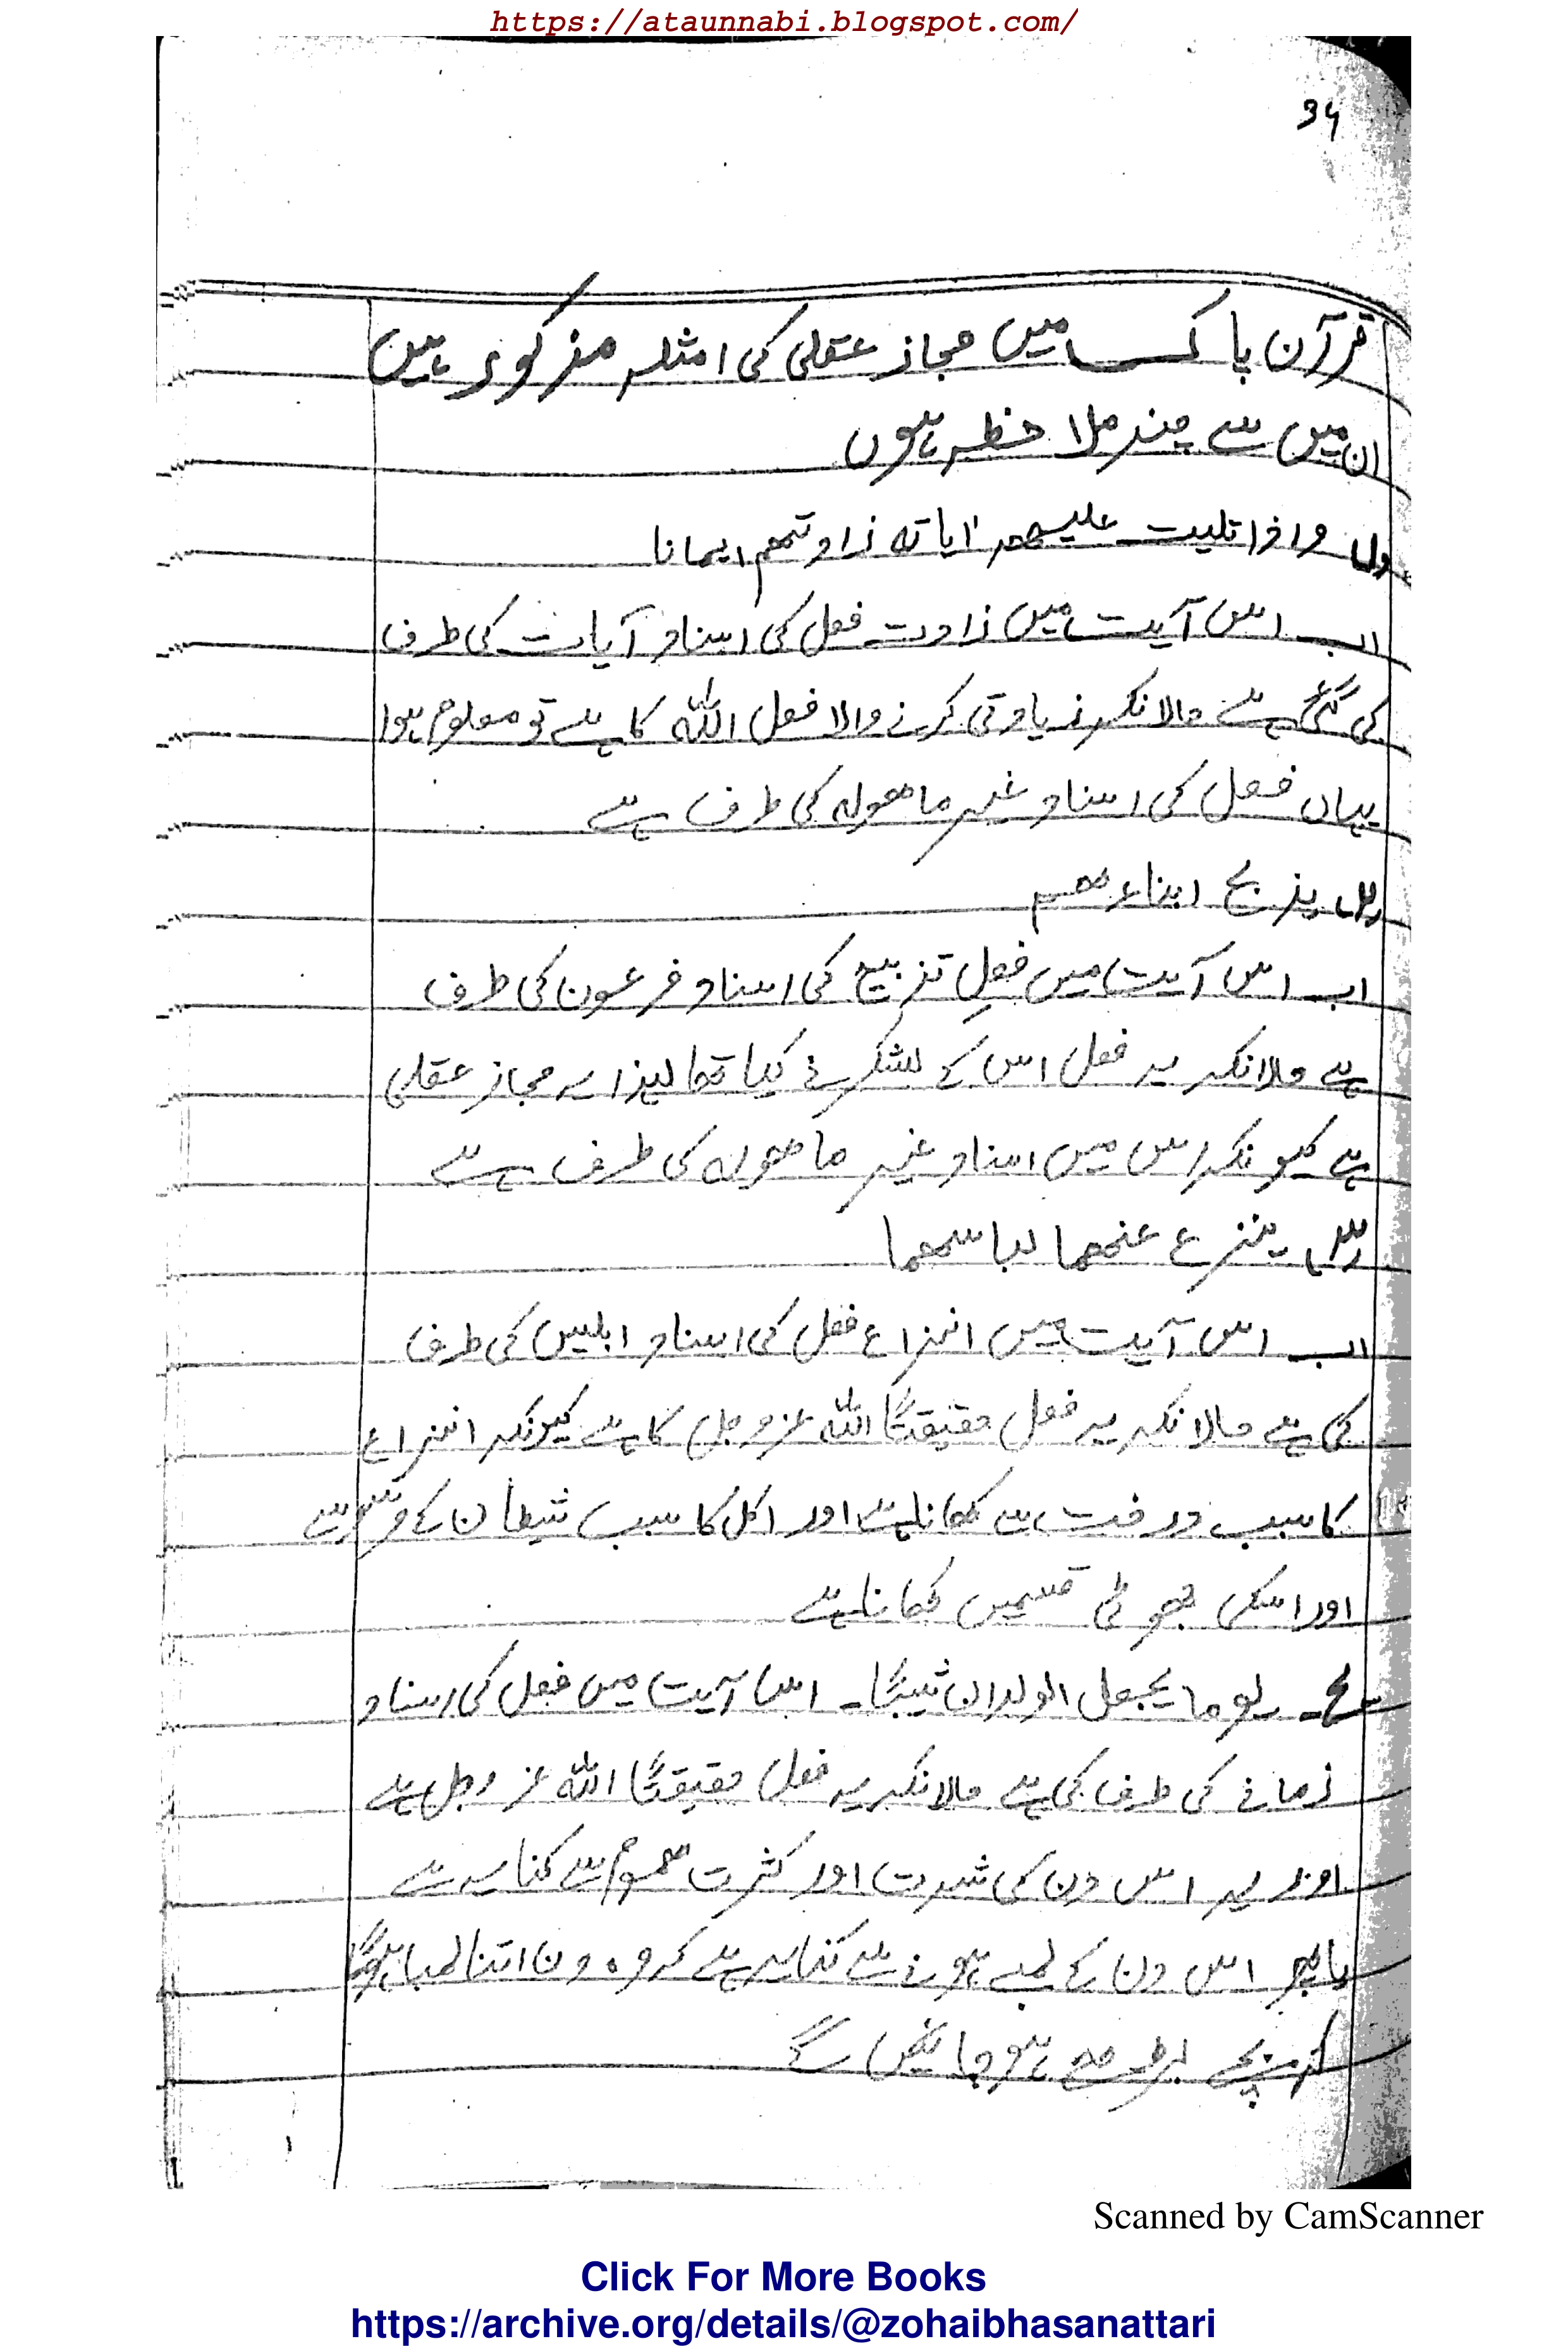 https://ataunnabi.blogspot.com/
34
قرآن پاک میں مجاز عقلی کی امثلہ مذکور ہیں
ان میں سے چند ملاحظہ ہوں
واذا تلیت علیھم اٰیاتہ زادتھم ایمانا
اب اس آیت میں زادت فعل کی اسناد آیات کی طرف
کی گئی ہے حالانکہ زیادتی کرنے والا فعل اللہ کا ہے تو معلوم ہوا
یہاں فعل کی اسناد غیر ماھولہ کی طرف ہے
یذبح ابناءھم
اب اس آیت میں فعلِ تذبیح کی اسناد فرعون کی طرف
ہے حالانکہ یہ فعل اس کے لشکر نے کیا تھا لہٰذا یہ مجاز عقلی
ہے کیونکہ اس میں اسناد غیر ماھولہ کی طرف ہے
ینزع عنھما لباسھما
اب اس آیت میں انتزاع فعل کی اسناد ابلیس کی طرف
کی ہے حالانکہ یہ فعل حقیقتًا اللہ عزوجل کا ہے کیونکہ انتزاع
کا سبب درخت سے کھانا ہے اور اکل کا سبب شیطان کے وسوسے
اور اسکی جھوٹی قسمیں کھانا ہے
یوما یجعل الولدان شیبًا۔ اس آیت میں فعل کی اسناد
زمانے کی طرف کی ہے حالانکہ یہ فعل حقیقتًا اللہ عزوجل ہے
اور یہ اس دن کی شدت اور کثرت ھموم سے کنایہ ہے
یا پھر اس دن کے لمبے ہونے سے کنایہ ہے کہ وہ دن اتنا لمبا ہوگا
کہ بچے بوڑھے ہو جائیں گے
Scanned by CamScanner
Click For More Books
https://archive.org/details/@zohaibhasanattari